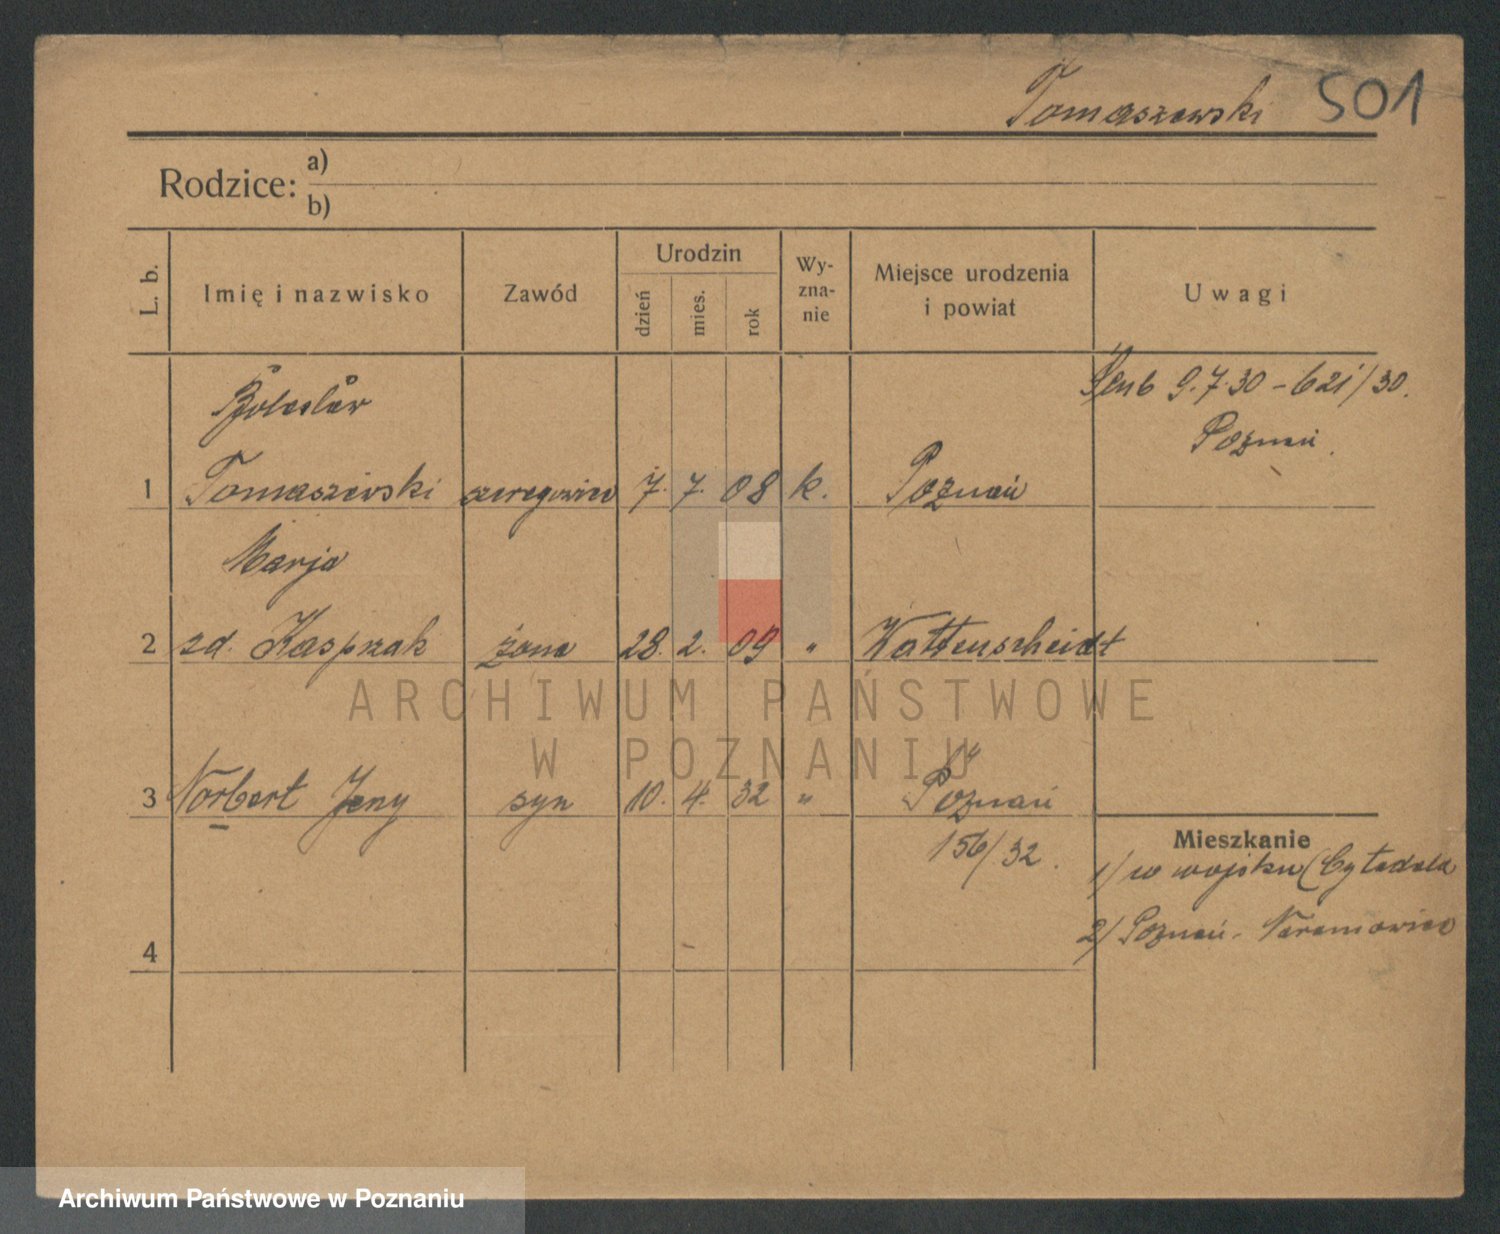 Tomaszewski 501
Rodzice: a)
b)
L. b. Imię i nazwisko Zawód Urodzin dzień mies. rok Wy-zna-nie Miejsce urodzenia i powiat Uwagi
Bolesław
ślub 9.7.30 - 621/30.
Poznań.
1 Tomaszewski szeregowiec 7. 7. 08 k. Poznań
Marja
2 zd. Kasprzak żona 28. 2. 09 " Wattenscheidt
3 Norbert Jerzy syn 10. 4. 32 " Poznań
156/32.
Mieszkanie
1/ w wojsku (Cytadela
2/ Poznań - Naramowice
4
ARCHIWUM PAŃSTWOWE
W POZNANIU
Archiwum Państwowe w Poznaniu